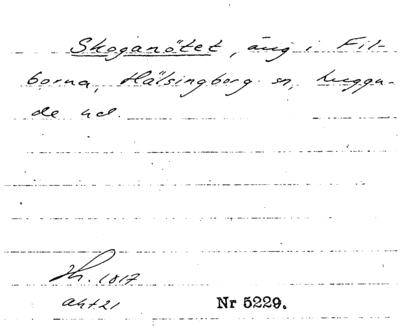 Skoganötet, äng i Fil-
borna, Hälsingborg sn, Luggu-
de hd.
Sk. 1817
akt 21 Nr 5229.